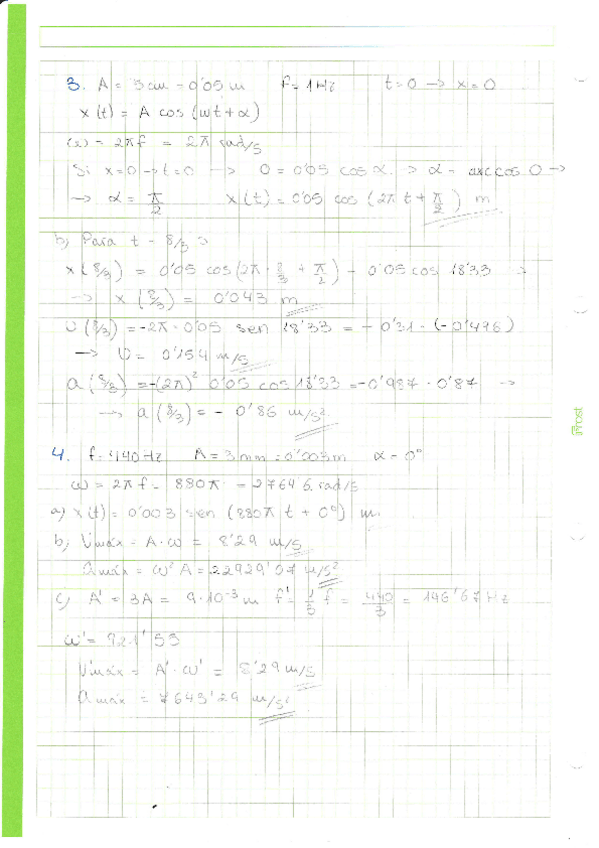 3. A = 5 cm = 0'05 m f = 1 Hz t=0 → x=0
x(t) = A cos (ωt + α)
ω = 2πf = 2π rad/s
Si x=0 → t=0 → 0 = 0'05 cos α → α = arc cos 0 →
→ α = π/2 x(t) = 0'05 cos (2π t + π/2) m
b) Para t = 8/3 →
x(8/3) = 0'05 cos(2π · 8/3 + π/2) = 0'05 cos 18'33 →
→ x(8/3) = 0'043 m
v(8/3) = -2π · 0'05 sen 18'33 = - 0'31 · (-0'496)
→ v = 0'154 m/s
a(8/3) = -(2π)² 0'05 cos 18'33 = -0'987 · 0'87 →
→ a(8/3) = - 0'86 m/s²
4. f = 440 Hz A = 3 mm = 0'003 m α = 0°
ω = 2πf = 880π = 2764'6 rad/s
a) x(t) = 0'003 sen (880π t + 0°) m
b) Vmáx = A · ω = 8'29 m/s
amáx = ω² A = 22929'57 m/s²
c) A' = 3A = 9·10⁻³ m f' = 1/3 f = 440/3 = 146'67 Hz
ω' = 921'55
V'máx = A' · ω' = 8'29 m/s
amáx = 7643'29 m/s²